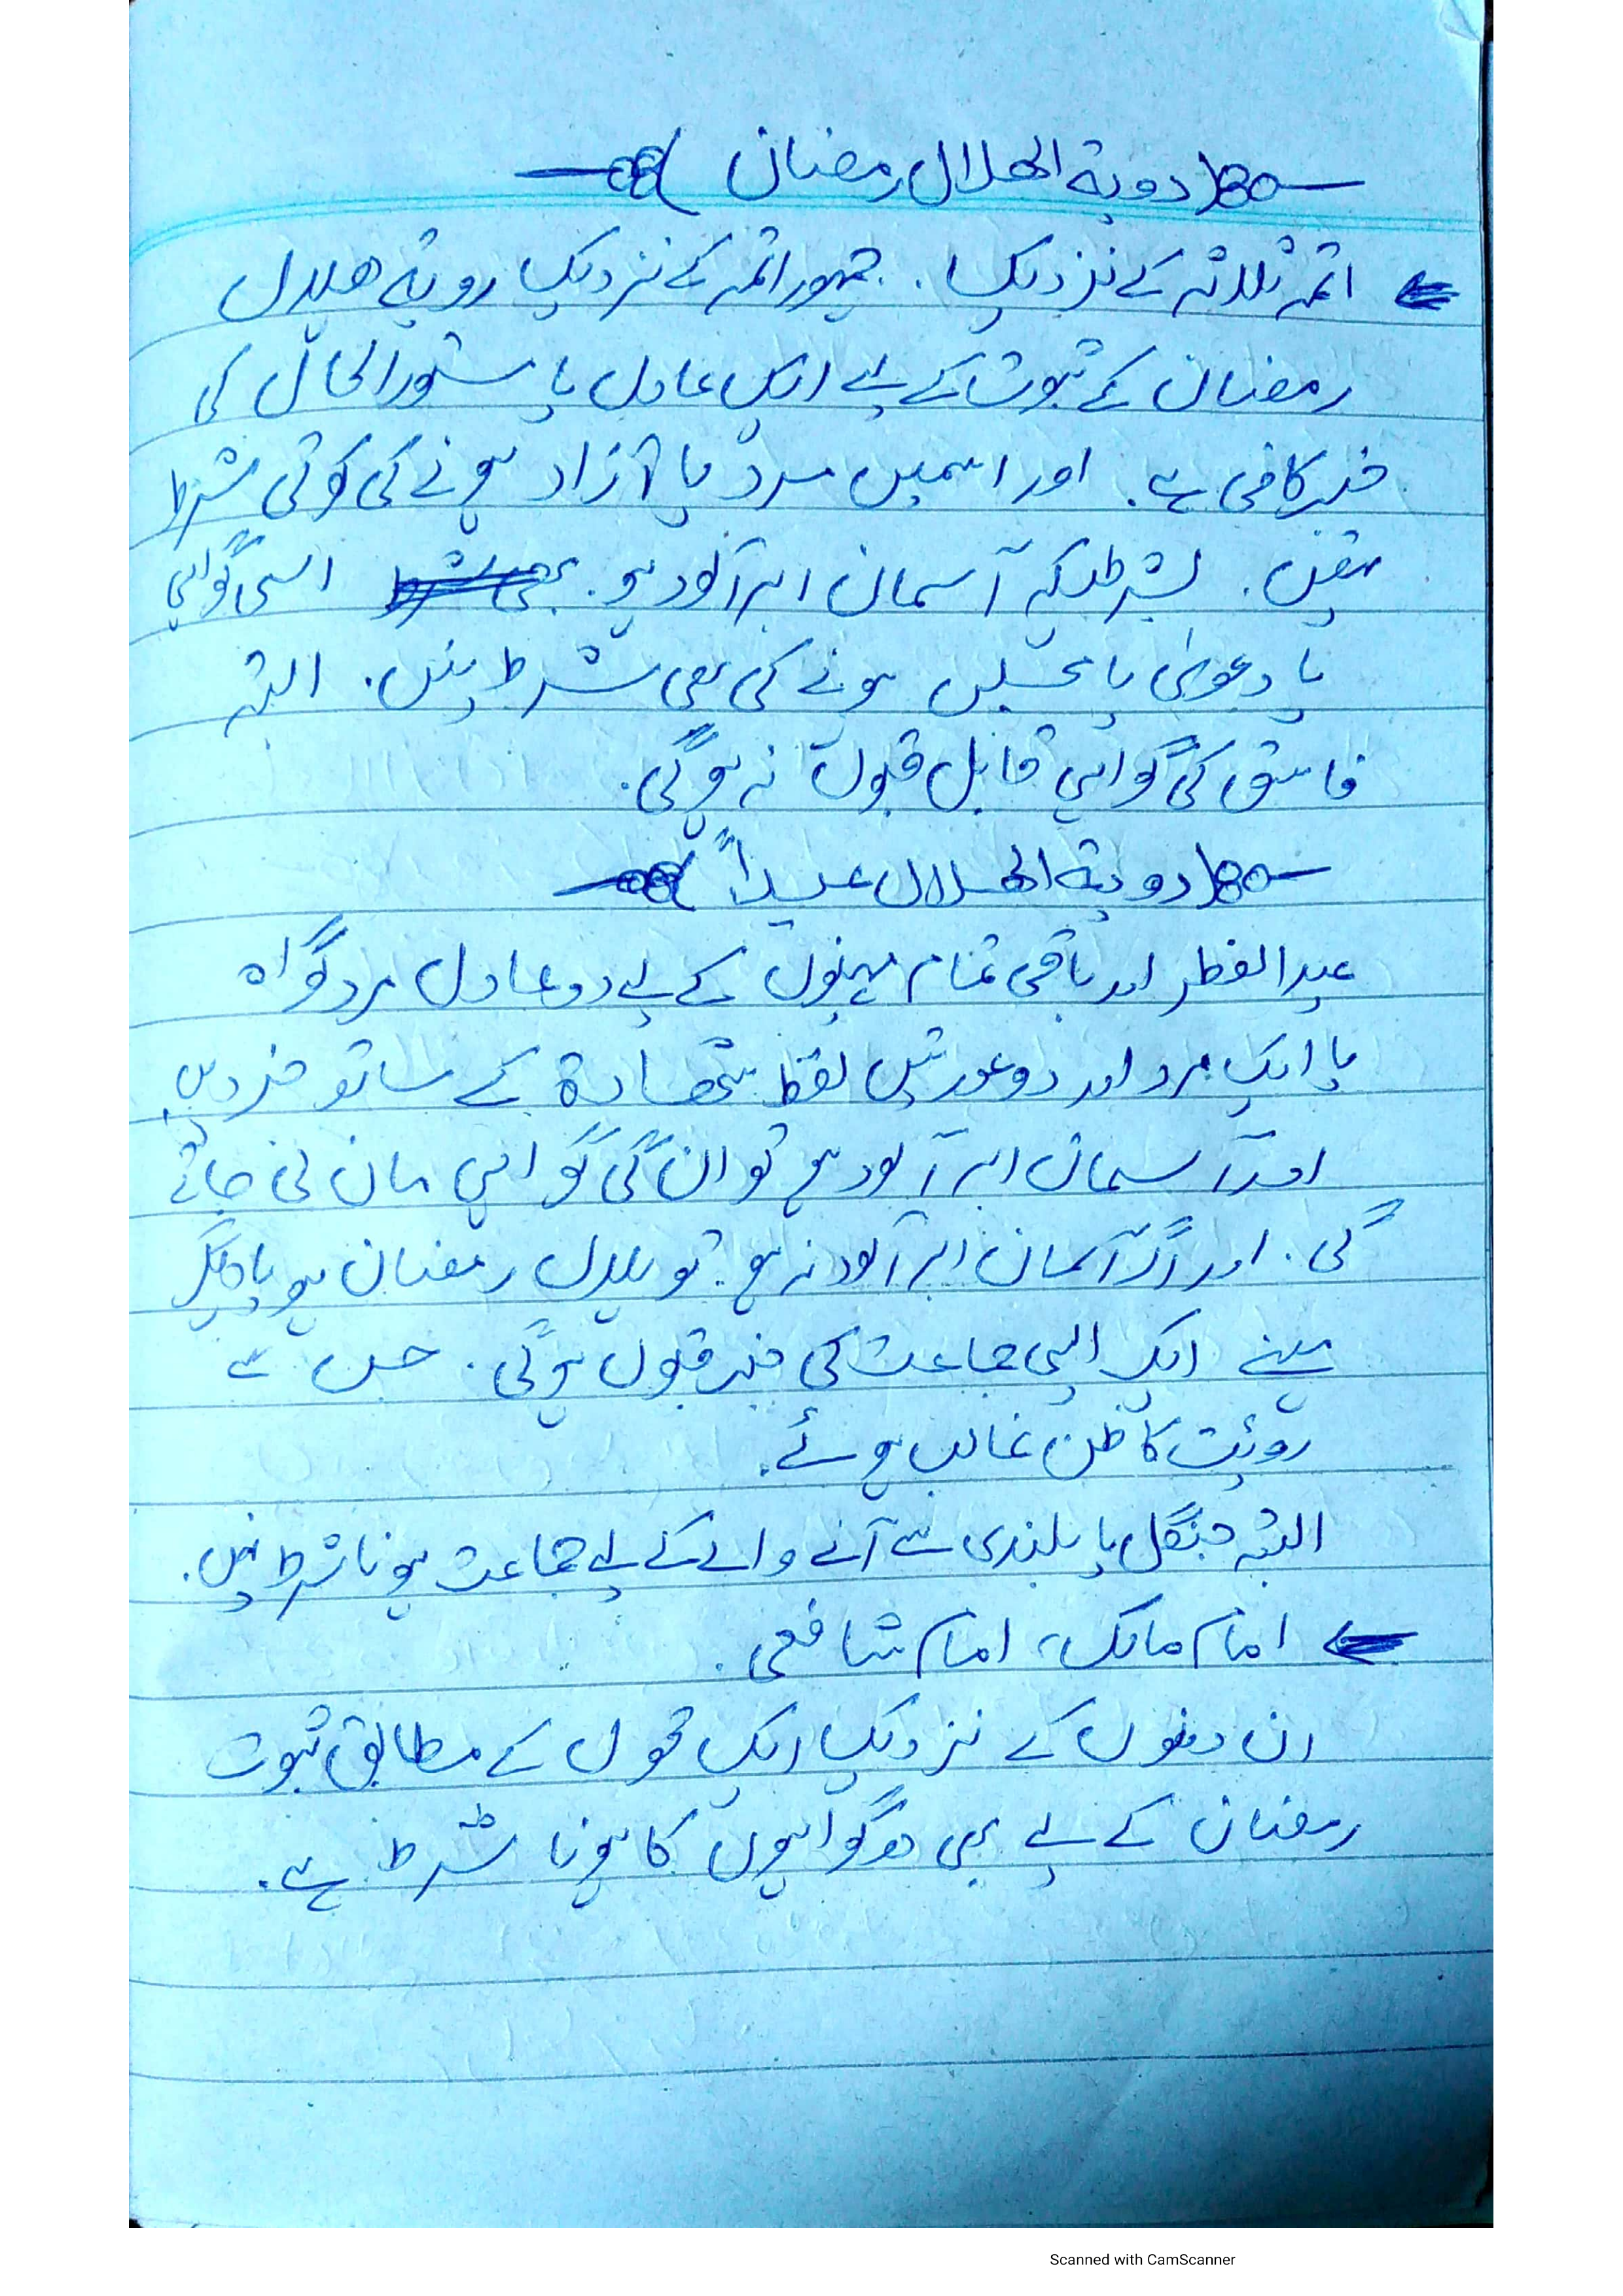 رویۃ الھلال رمضان
ائمہ ثلاثہ کے نزدیک . جمہور ائمہ کے نزدیک رویۃ ھلال
رمضان کے ثبوت کے لیے ایک عادل یا مستورالحال کی
خبر کافی ہے . اور اسمیں مرد یا آزاد ہونے کی کوئی شرط
نہیں . بشرطیکہ آسمان ابر آلود ہو . اسی گواہی
یا دعویٰ یا مجلس ہونے کی بھی شرط نہیں . البتہ
فاسق کی گواہی قابل قبول نہ ہوگی .
رویۃ الھلال عیداً
عید الفطر اور باقی تمام مہینوں کے لیے دو عادل مرد گواہ
یا ایک مرد اور دو عورتیں لفظ شھادۃ کے ساتھ خبر دیں
اور آسمان ابر آلود ہو تو ان کی گواہی مان لی جائے
گی . اور اگر آسمان ابر آلود نہ ہو . تو ہلال رمضان ہو یا دیگر
مہینے ایک ایسی جماعت کی خبر قبول ہوگی . جس سے
روئیت کا ظن غالب ہوئے .
البتہ جنگل یا بلندی سے آنے والے کے لیے جماعت ہونا شرط نہیں .
امام مالک ، امام شافعی .
ان دونوں کے نزدیک ایک قول کے مطابق ثبوت
رمضان کے لیے بھی دو گواہوں کا ہونا شرط ہے .
Scanned with CamScanner